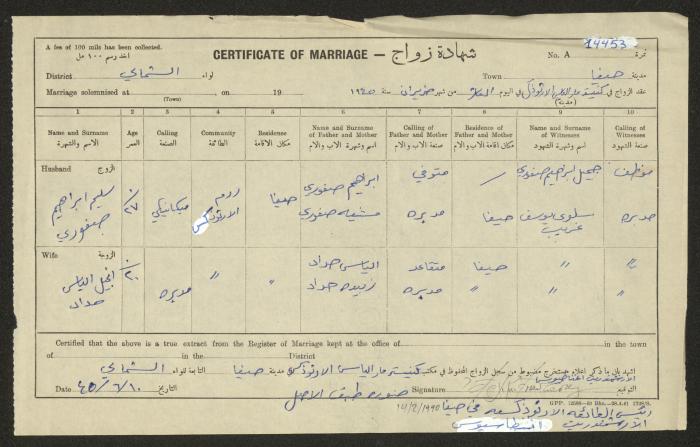 A fee of 100 mils has been collected.
اخذ رسم ١٠٠ مل
CERTIFICATE OF MARRIAGE — شهادة زواج
No. A 14453 نمرة
District لواء الشمالي
Town مدينة حيفا
Marriage solemnised at on 19
(Town)
عقد الزواج في كنيسة مار الياس الارثوذكس في اليوم العاشر من شهر حزيران سنة ١٩٤٥
(مدينة)
1 2 3 4 5 6 7 8 9 10
Name and Surname الاسم والشهرة
Age العمر
Calling الصنعة
Community الطائفة
Residence مكان الاقامة
Name and Surname of Father and Mother اسم وشهرة الاب والام
Calling of Father and Mother صنعة الاب والام
Residence of Father and Mother مكان اقامة الاب والام
Name and Surname of Witnesses اسم وشهرة الشهود
Calling of Witnesses صنعة الشهود
Husband الزوج
سليم ابراهيم صنفوري
٢٧
ميكانيكي
روم الارثوذكس
حيفا
ابراهيم صفوري
صفوري
متوفي
مدبره
حيفا
جميل ابراهيم صفوري
سلوى يوسف غريب
موظف
مدبره
Wife الزوجة
انجيل الياس حداد
٢٠
مدبره
"
"
الياس حداد
زبيده حداد
متقاعد
مدبره
حيفا
"
"
"
"
"
Certified that the above is a true extract from the Register of Marriage kept at the office of in the town
of in the District
اشهد بان ما ذكر اعلاه مستخرج مضبوط من سجل الزواج المحفوظ في مكتب كنيسة مار الياس الارثوذكس مدينة حيفا التابعة لواء الشمالي
Date ٤٥/٦/١٠ التاريخ
صورة طبق الاصل
Signature التوقيع
14/2/1990
رئيس الطائفة الارثوذكسية في حيفا
الارشمندريت